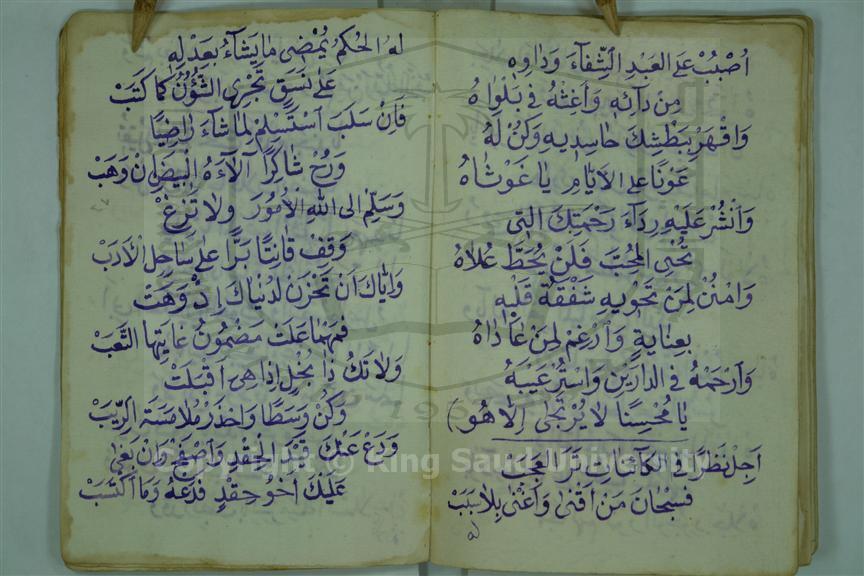 اُصْبُبْ عَلَى العَبْدِ الشِّفَآءَ وَدٰاوِهِ
مِنْ دَآئِهِ وَاَغِثْهُ فِي بَلْوٰاهُ
وَاقْهَرْ بِبَطْشِكَ حٰاسِدِيهِ وَكُنْ لَهُ
عَوْنًا عَلَى الأَيّٰامِ يٰا غَوْثٰاهُ
وَانْشُرْ عَلَيْهِ رِدَآءَ رَحْمَتِكَ الَّتِي
تُحْيِي المُحِبَّ فَلَنْ يُحَطَّ عُلاٰهُ
وَامْنُنْ لِمَنْ تَحْوِيهِ شَفْقَةُ قَلْبِهِ
بِعِنٰايَةٍ وَاَرْغِمْ لِمَنْ عٰادٰاهُ
وَاَرْحَمْهُ فِي الدٰارَيْنِ وَاسْتُرْ عَيْبَهُ
يٰا مُحْسِنًا لاٰ يُرْتَجٰى اِلاّٰ هُوَ)
اَجِلْ نَظَرًا فِي الكٰآئِنٰاتِ تَرَ العَجَبْ
فَسُبْحٰانَ مَنْ اَقْنٰى وَاَغْنٰى بِلاٰ سَبَبْ
لهُ
لهُ الحُكْمُ يُمْضِي مٰا يَشَآءُ بِعَدْلِهِ
عَلٰى نَسَقٍ تَجْرِي الشُّؤُنُ كَمٰا كَتَبْ
فَاِنْ سَلَبَ اسْتَسْلِمْ لِمٰا شَآءَ رٰاضِيًا
وَرُحْ شٰاكِرًا آلآءَهُ البِيضَ اِنْ وَهَبْ
وَسَلِّمْ اِلَى اللهِ الأُمُورَ وَلاٰ تَزِغْ
وَقِفْ قٰانِتًا بَرًّا عَلٰى سٰاحِلِ الأَدَبْ
وَاِيّٰاكَ اَنْ تَحْزَنْ لِدُنْيٰاكَ اِنْ وَهَتْ
فَمَهْمٰا عَلَتْ مَضْمُونُ غٰايَتِهٰا التَّعَبْ
وَلاٰ تَكُ ذٰا بُخْلٍ اِذٰا هِيَ اَقْبَلَتْ
وَكُنْ وَسَطًا وَاحْذَرْ مُلاٰمَسَةَ الرِّيَبْ
وَدَعْ عَنْكَ قَيْدَ الحِقْدِ وَاَصْفَحْ وَاِنْ بَغٰى
عَلَيْكَ اَخُو حِقْدٍ فَدَعْهُ وَمَا اكْتَسَبْ
Copyright © King Saud University